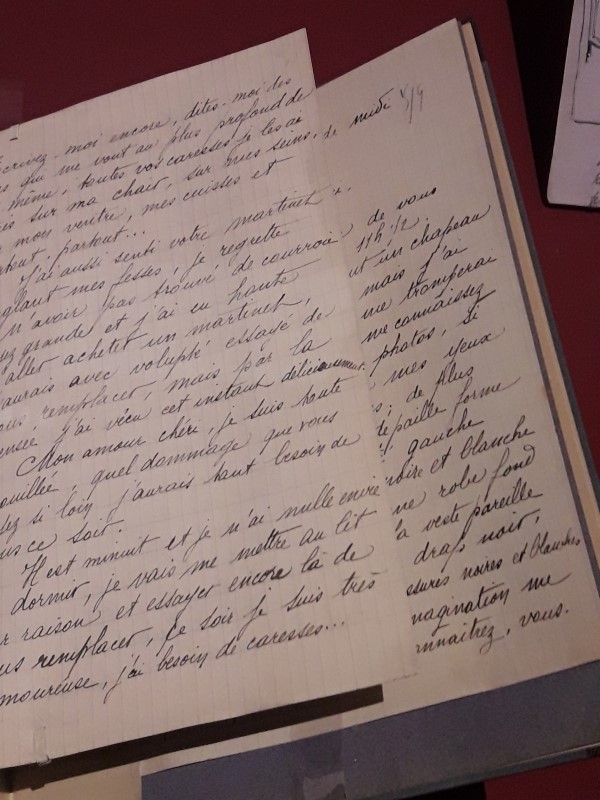 crivez-moi encore, dites-moi des
qui me vont au plus profond de
même, toutes vos caresses je les ai
sur ma chair, sur mes seins,
mon ventre, mes cuisses et
partout...
J'ai aussi senti votre martinet
mes fesses, je regrette
n'avoir pas trouvé de courroie
grande et j'ai eu honte
aller acheter un martinet,
aurais avec volupté essayé de
remplacer, mais par la
pensée j'ai vécu cet instant délicieusement.
Mon amour chéri, je suis toute
mouillée, quel dommage que vous
si loin j'aurais tant besoin de
ce soir.
Il est minuit et je n'ai nulle envie
dormir, je vais me mettre au lit
raison et essayer encore là de
remplacer, ce soir je suis très
amoureuse, j'ai besoin de caresses...
de vous
11h 1/2.
un chapeau
mais j'ai
me tromperai
me connaissez
photos, si
mes yeux
de plus
paille forme
gauche
noire et blanche
robe fond
la veste pareille
drap noir,
noires et blanches
me
vous.